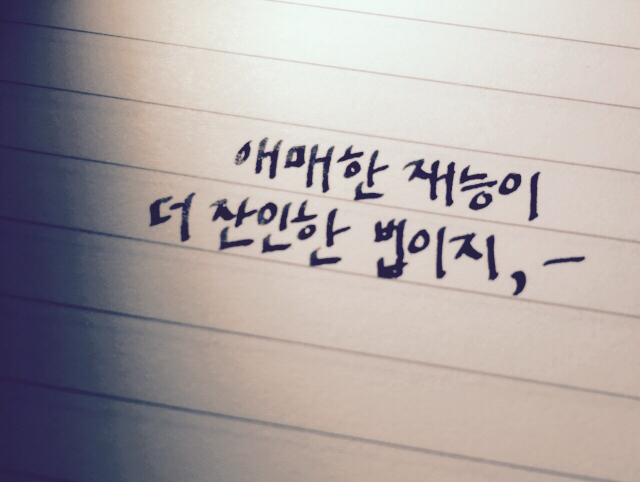 애매한 재능이
더 잔인한 법이지,-